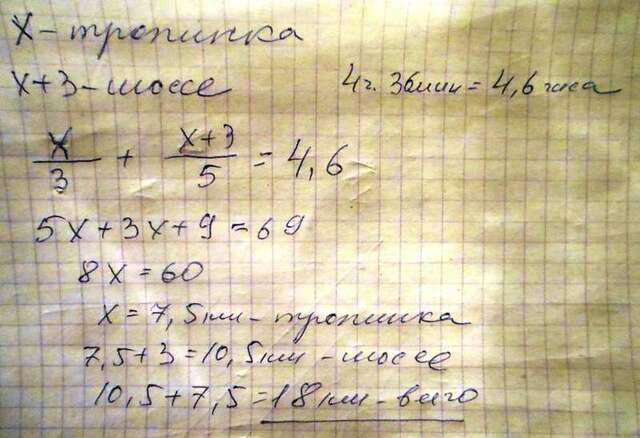 x - тропинка
x+3 - шоссе 4 г. 36 мин = 4,6 часа
x/3 + x+3/5 = 4,6
5x+3x+9=69
8x=60
x=7,5 км - тропинка
7,5+3=10,5 км - шоссе
10,5+7,5=18 км - всего